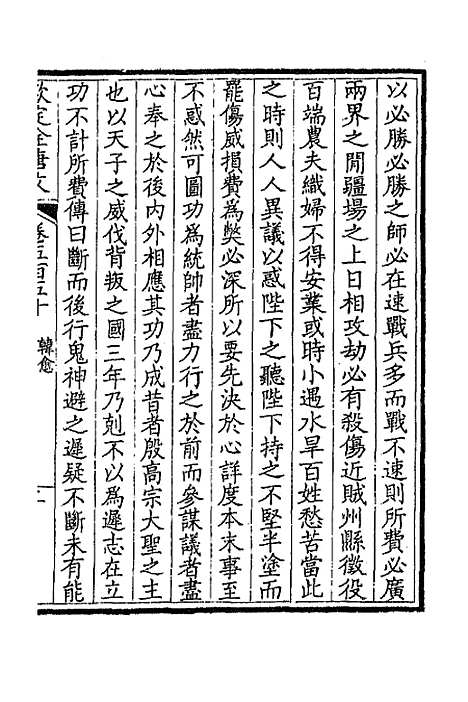 以必勝必勝之師必在速戰兵多而戰不速則所費必廣
兩界之閒疆場之上日相攻劫必有殺傷近賊州縣徵役
百端農夫織婦不得安業或時小遇水旱百姓愁苦當此
之時則人人異議以惑陛下之聽陛下持之不堅半塗而
罷傷威損費爲弊必深所以要先決於心詳度本末事至
不惑然可圖功爲統帥者盡力行之於前而參謀議者盡
心奉之於後內外相應其功乃成昔者殷高宗大聖之主
也以天子之威伐背叛之國三年乃剋不以爲遲志在立
功不計所費傳曰斷而後行鬼神避之遲疑不斷未有能
欽定全唐文
卷五百五十
韓愈